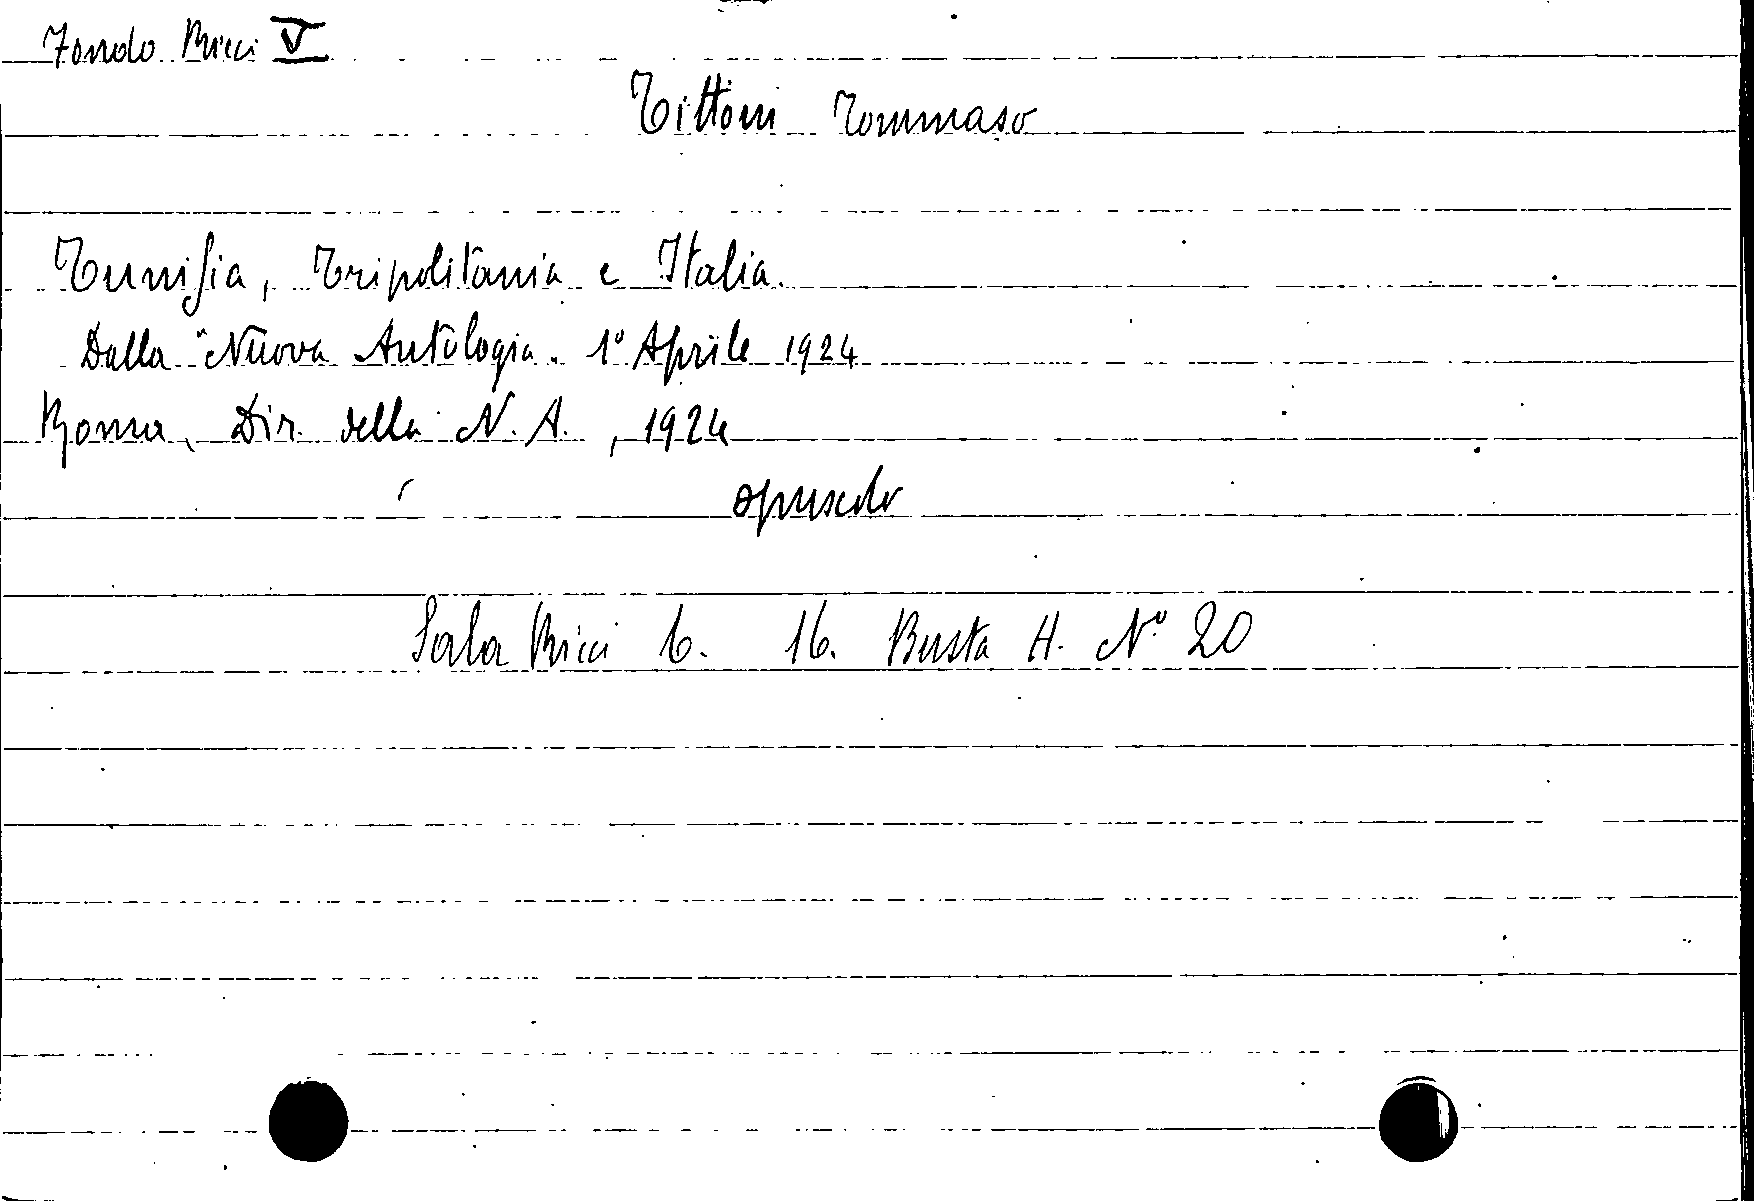 Fondo Ricci V
Tittoni Tommaso
Tunisia, Tripolitania e Italia.
Dalla "Nuova Antologia. 1° Aprile 1924
Roma, Dir. della N. A., 1924
opuscolo
Sala Ricci 6. 16. Busta H. N° 20